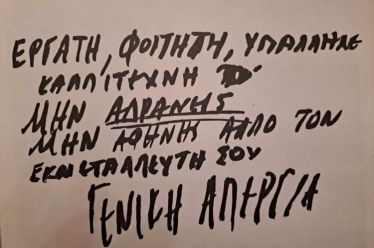 ΕΡΓΑΤΗ, ΦΟΙΤΗΤΗ, ΥΠΑΛΛΗΛΕ
ΚΑΛΛΙΤΕΧΝΗ
ΜΗΝ ΑΔΡΑΝΗΣ
ΜΗΝ ΑΦΗΝΗΣ ΑΛΛΟ ΤΟΝ
ΕΚΜΕΤΑΛΛΕΥΤΗ ΣΟΥ
ΓΕΝΙΚΗ ΑΠΕΡΓΙΑ